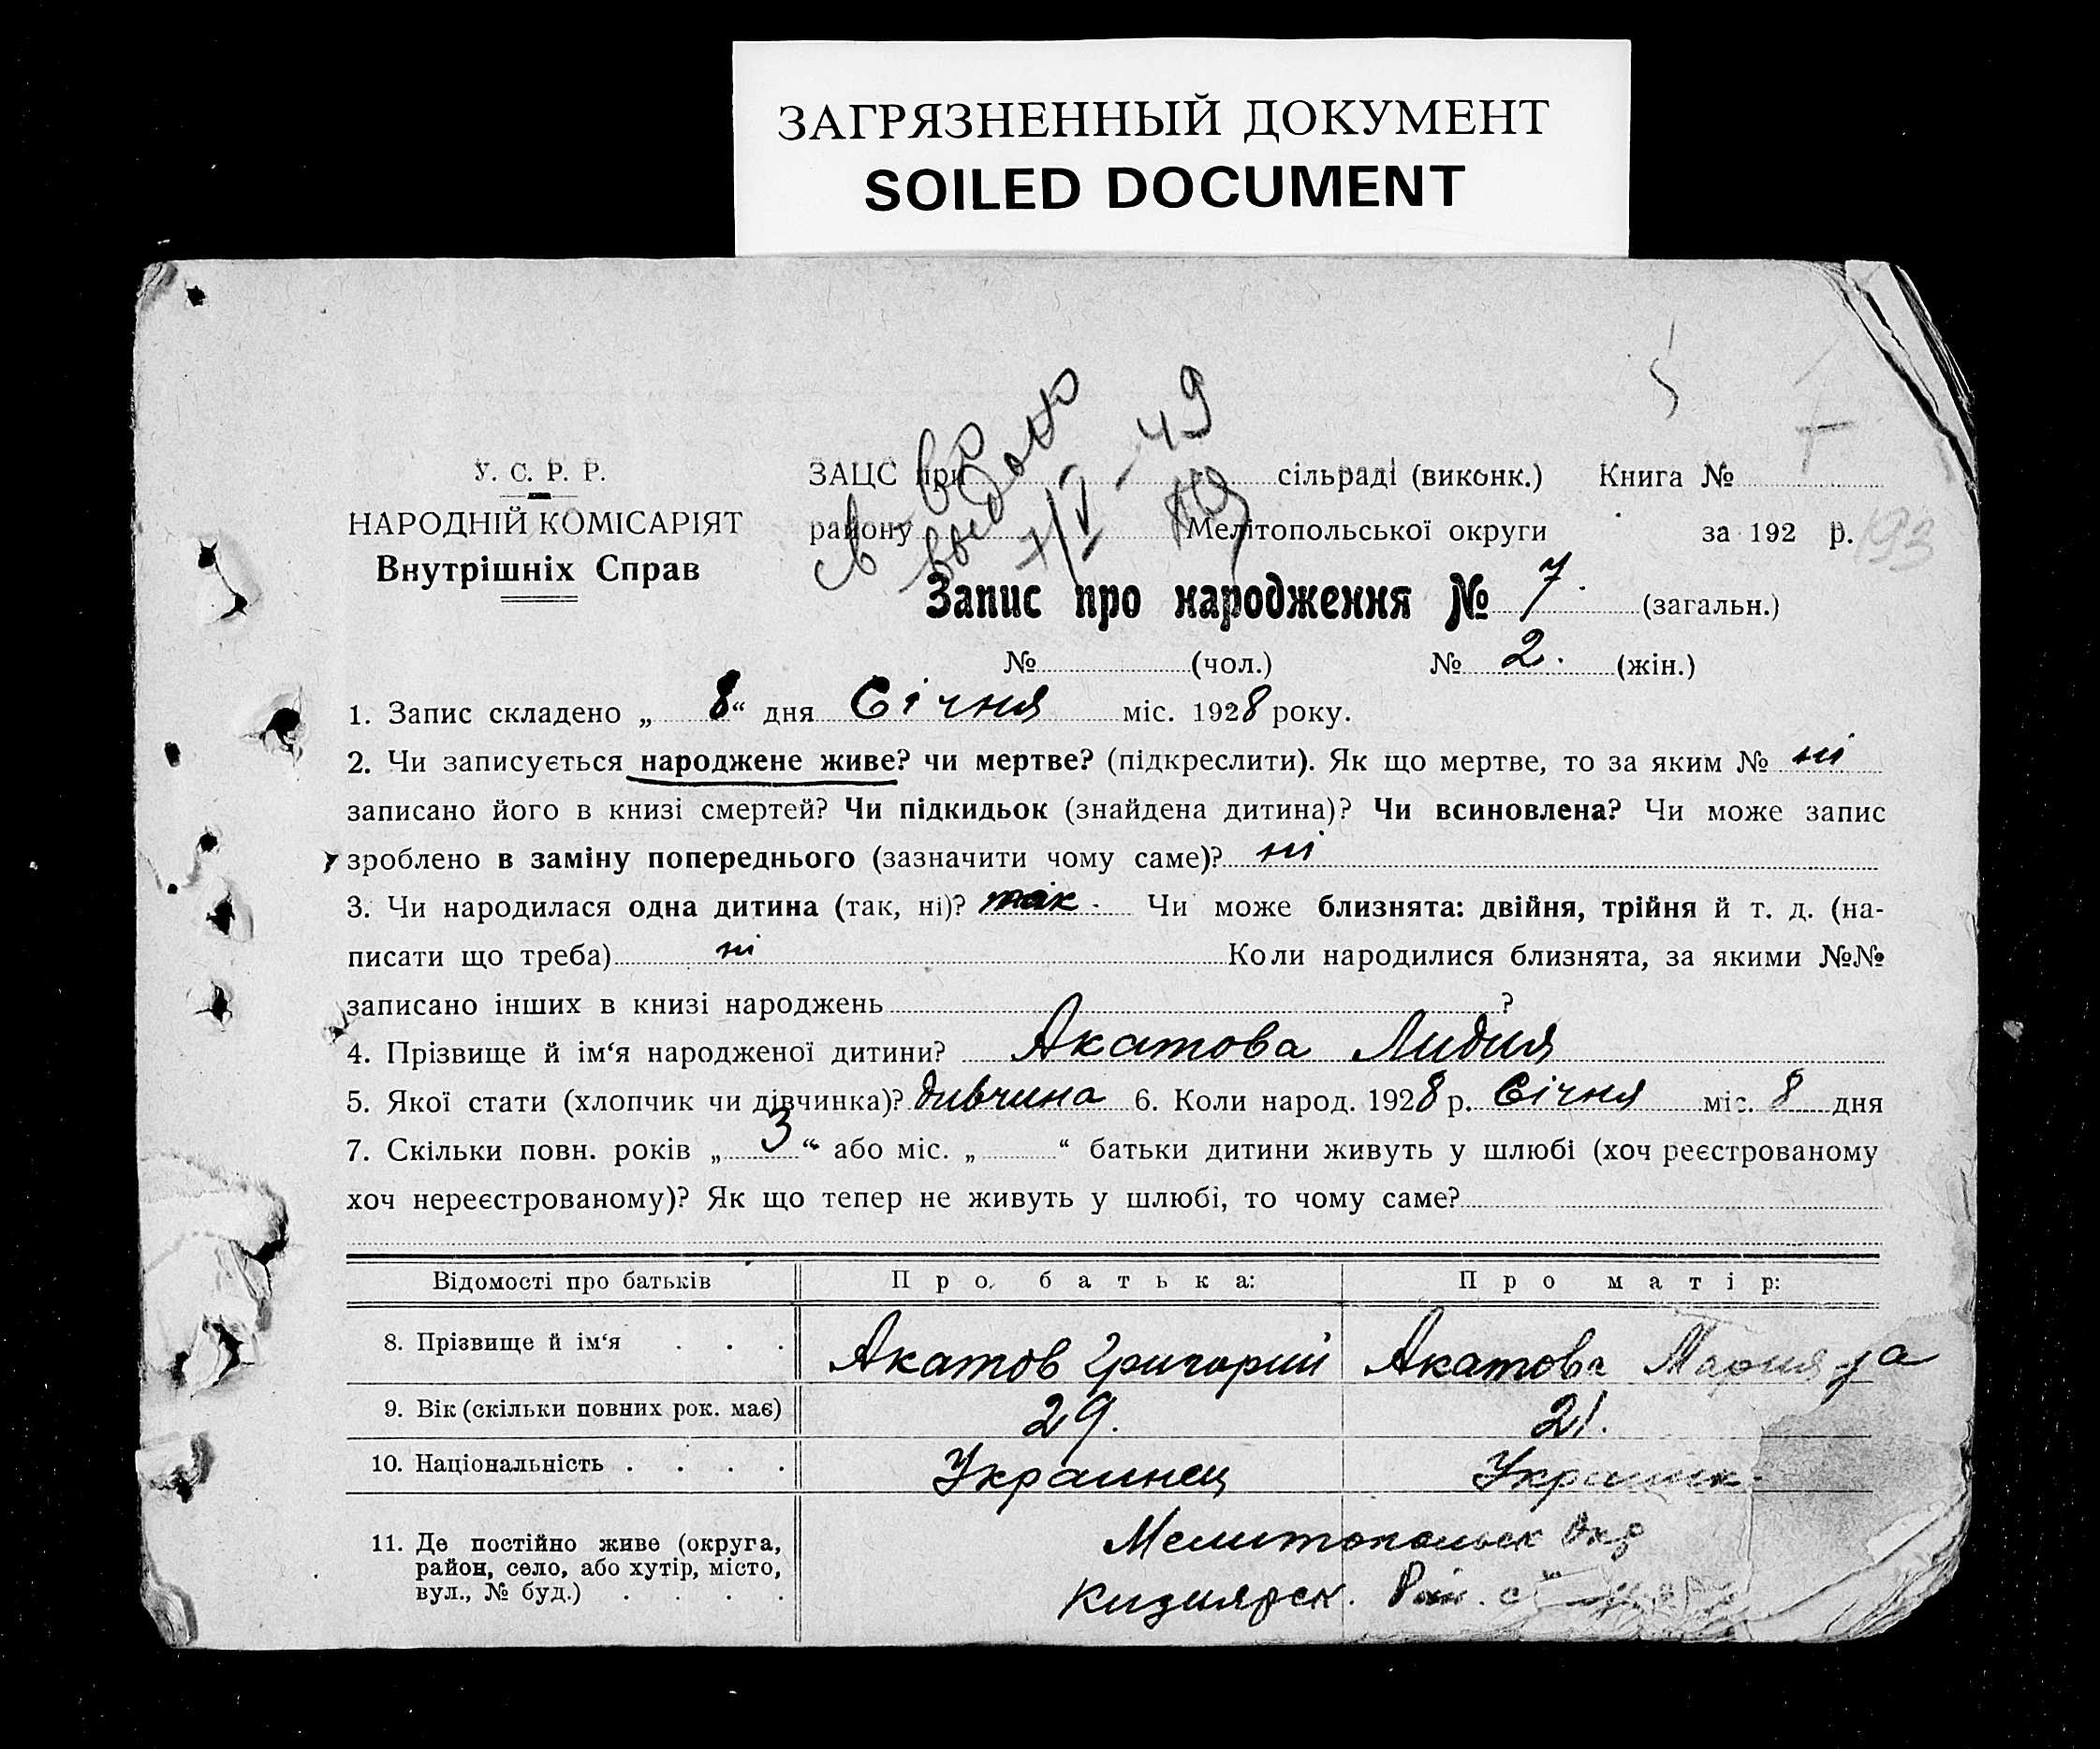 ЗАГРЯЗНЕННЫЙ ДОКУМЕНТ
SOILED DOCUMENT
У. С. Р. Р.
НАРОДНІЙ КОМІСАРІЯТ
Внутрішніх Справ
ЗАЦС при сільраді (виконк.) Книга №
району Мелітопольської округи за 192 р. 193
св-во
выдано
Запис про народження № 7. (загальн.)
№ (чол.) № 2. (жін.)
1. Запис складено „ 8“ дня Січня міс. 1928 року.
2. Чи записується народжене живе? чи мертве? (підкреслити). Як що мертве, то за яким № ні
записано його в книзі смертей? Чи підкидьок (знайдена дитина)? Чи всиновлена? Чи може запис
зроблено в заміну попереднього (зазначити чому саме)? ні
3. Чи народилася одна дитина (так, ні)? так. Чи може близнята: двійня, трійня й т. д. (на-
писати що треба) ні Коли народилися близнята, за якими №№
записано інших в книзі народжень ?
4. Прізвище й ім‘я народженої дитини? Акатова Лидия
5. Якої стати (хлопчик чи дівчинка)? дивчина 6. Коли народ. 1928 р. Січня міс. 8 дня
7. Скільки повн. років „ 3 “ або міс. „ “ батьки дитини живуть у шлюбі (хоч реєстрованому
хоч нереєстрованому)? Як що тепер не живуть у шлюбі, то чому саме?
Відомості про батьків Про батька: Про матір:
8. Прізвище й ім‘я . . . Акатов Григорий Акатова Мария
9. Вік (скільки повних рок. має) 29. 21.
10. Національність . . . . Украинец
11. Де постійно живе (округа, район, село, або хутір, місто, вул., № буд.) . . . .
Мелитопольск Окр
Кизиярск. Рай. с